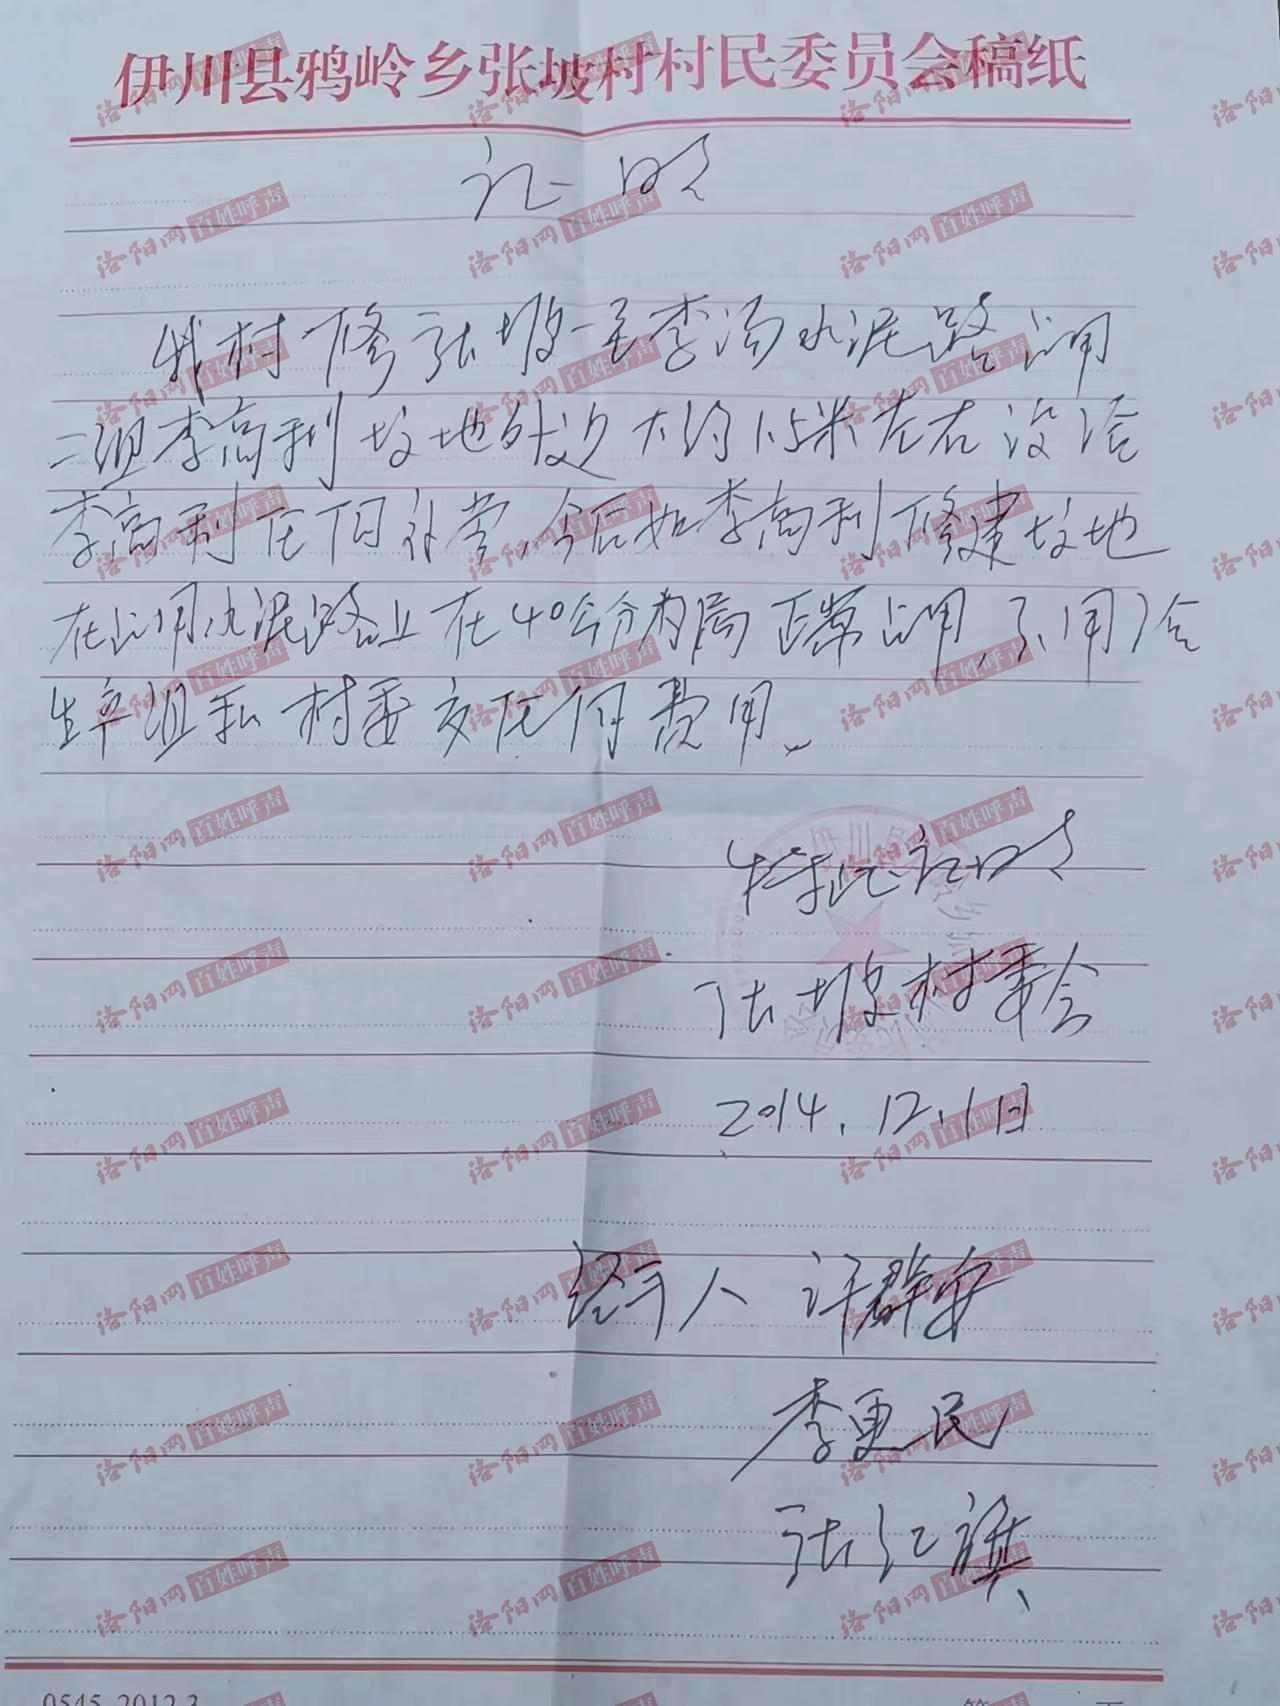 伊川县鸦岭乡张坡村村民委员会稿纸
证明
我村修张坡至李沟水泥路占用
二组李高利坟地外边大约1.5米左右没给
李高利任何补偿,今后如李高利修建坟地
在占用水泥路上在40公分为局正常占用,不用给
生产组和村委交任何费用、
特此证明
张坡村委会
2014.12.1日
经手人 许群安
李更民
张红旗
0545-2012.3
洛阳网百姓呼声